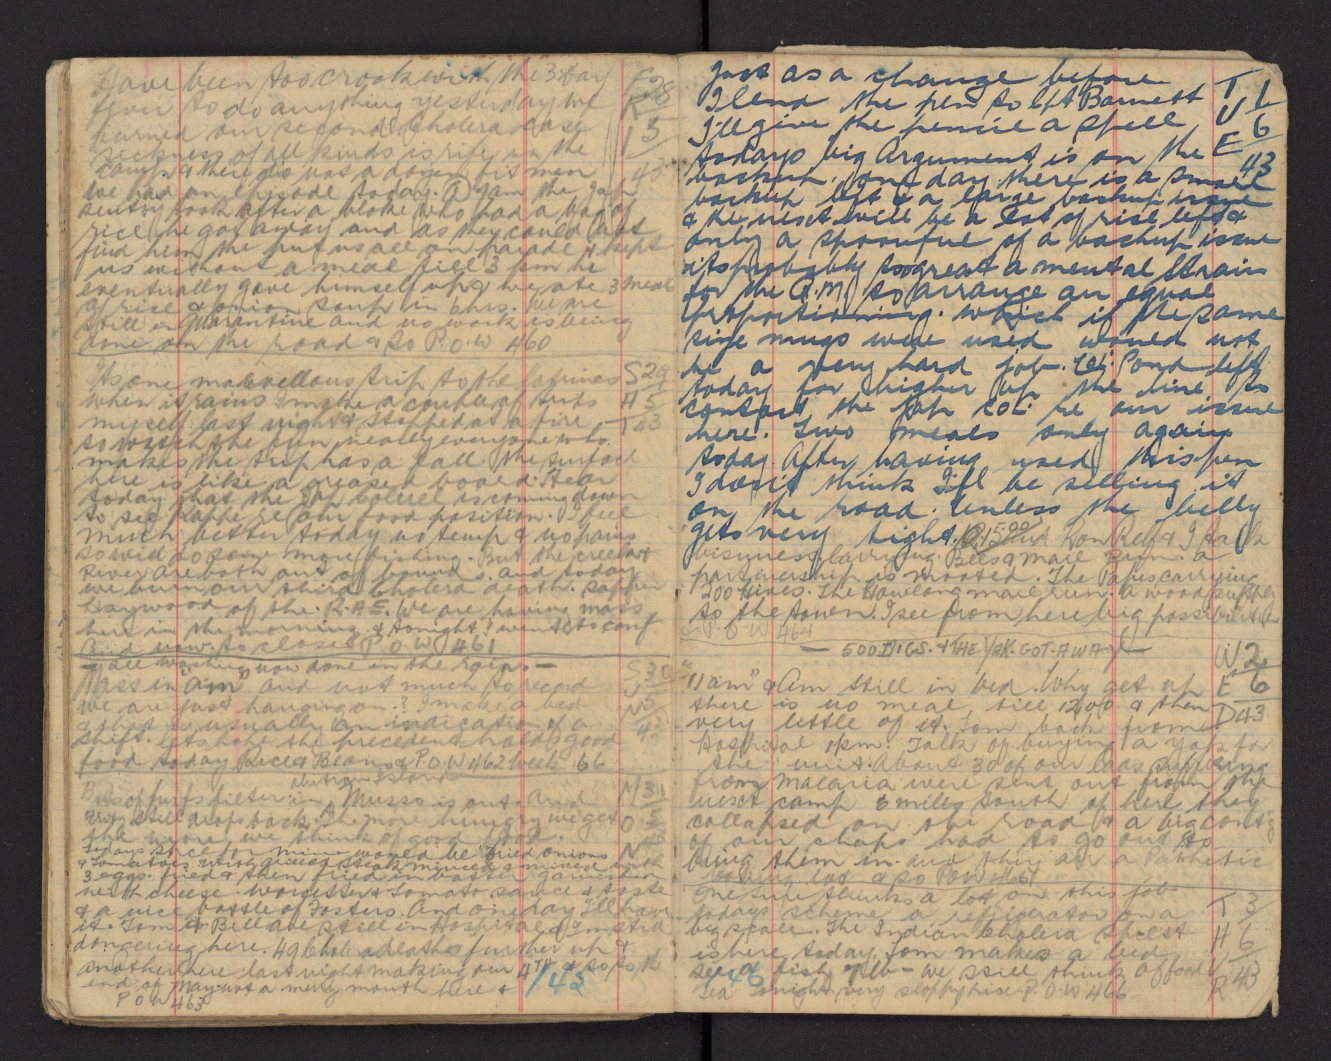 Have been too crook with the 3 day
fever to do anything yesterday we
burned our second Cholera case
sickness of all kinds is rife in the
camp & there is not a dozen fit men
we had an episode today. A 7am the Jap
sentry took after a bloke who had a bag of
rice he got away and as they could not
find him they put us all on parade & kept
us without a meal till 3 pm he
eventually gave himself up & we ate 3 meals
of rice & onion soup in 6 hrs. We are
still in Quarantine and no work is being
done on the road & so P.O.W 460
F 28
R 5
I 43
Its one marvellous trip to the latrines
when it rains I make a couple of trips
myself last night & stopped at a fire
to watch the fun, nearly everyone who
makes the trip has a fall the surface
here is like a greased board. Hear
today that the Jap Colonel is coming down
to see Kappe re our food position. I feel
much better today no temp & no pains
so will do some more fishing. But the creek &
River are both out of bounds. and today
we burn our third cholera death. Sapper
Haywood of the R.A.E. We are having mass
here in the morning & tonight I went to conf
and now to close P.O.W 461
S 29
A 5
T 43
— all washing now done in the rain. —
Mass in "am" and not much to record
we are just hanging on? I make a bed
& that is usually an indication of a
shift. Lets hope the precedent holds good
food today Rice & Beans & P.O.W 462 Week 66
S 30
U 5
N 43
Bits of furfs filter in Musso is out and
Ities still drops back. The more hungry we get
the more we think of good food.
Todays spec for mine would be fried onions
& tomatoes with grilled steak minced & mixed with
3 eggs fried & then fried in batter garnished
with cheese. Worcester & tomato sauce & toast
& a nice bottle of Fosters. And one day I'll have
it. Tom & Bill are still in Hospital & I'm still
dongering here. 49 Cholera deaths further up &
another here last night making our 4TH & so to the
end of May. not a merry month here &
P.O.W 463
M 31
O 5
N 43
1/43
Just as a change before
I lend the pen to Cpt Barnett
I'll give the pencil a spell
todays big argument is on the
backup. one day there is a small
backup left & a large backup issue
& the next will be a lot of rice left &
only a spoonful of a backup issue
its probably too great a mental strain
for the Q.M. to arrange an equal
proportioning. Which if the same
size mugs were used would not
be a very hard job. Col Pond left
today for higher up the line to
contact the Jap Col: re our issue
here. Two meals only again
today. After having used this pen
I don't think I'll be selling it
on the road. Unless the belly
gets very tight. Ron Relf & I talk
business farming. Bees & mail run. a
partnership is mooted. The Papers carrying
200 Hives. The Howlong mail run. a wood supply
to the town. I see from here big possibilities
& P.O.W 464
T 1
U 6
E 43
— 500 DIGS. & THE YAK. GOT. AWAY —
"11 am" & Am still in bed. Why get up
there is no meal till 1200. & then
very little of it. Tom back from
Hospital okm. Talk of buying a yak for
the unit. About 30 of our lads suffering
from malaria were sent out from the
next camp 6 miles south of here they
collapsed on the road & a big contg
of our chaps had to go out to
bring them in. and they are a pathetic
looking lot & so POW 465
W 2
E 6
D 43
One sure thinks a lot on this job
todays scheme a refrigerator on a
big scale. The Indian Cholera Spclst
is here today. Tom makes a bed
we still think of food
Tea tonight very sloppy rice P.O.W 466
T 3
H 6
U 43
R